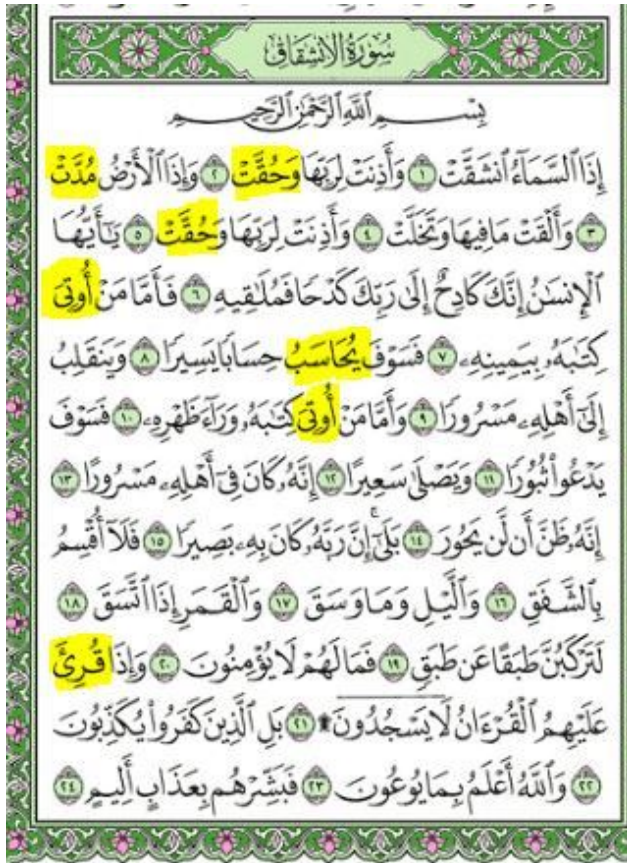 سُورَةُ الانشِقَاقِ
بِسْمِ ٱللَّهِ ٱلرَّحْمَٰنِ ٱلرَّحِيمِ
إِذَا ٱلسَّمَآءُ ٱنشَقَّتْ ١ وَأَذِنَتْ لِرَبِّهَا وَحُقَّتْ ٢ وَإِذَا ٱلْأَرْضُ مُدَّتْ
٣ وَأَلْقَتْ مَا فِيهَا وَتَخَلَّتْ ٤ وَأَذِنَتْ لِرَبِّهَا وَحُقَّتْ ٥ يَٰٓأَيُّهَا
ٱلْإِنسَٰنُ إِنَّكَ كَادِحٌ إِلَىٰ رَبِّكَ كَدْحًا فَمُلَٰقِيهِ ٦ فَأَمَّا مَنْ أُوتِىَ
كِتَٰبَهُۥ بِيَمِينِهِۦ ٧ فَسَوْفَ يُحَاسَبُ حِسَابًا يَسِيرًا ٨ وَيَنقَلِبُ
إِلَىٰٓ أَهْلِهِۦ مَسْرُورًا ٩ وَأَمَّا مَنْ أُوتِىَ كِتَٰبَهُۥ وَرَآءَ ظَهْرِهِۦ ١٠ فَسَوْفَ
يَدْعُوا۟ ثُبُورًا ١١ وَيَصْلَىٰ سَعِيرًا ١٢ إِنَّهُۥ كَانَ فِىٓ أَهْلِهِۦ مَسْرُورًا ١٣
إِنَّهُۥ ظَنَّ أَن لَّن يَحُورَ ١٤ بَلَىٰٓ إِنَّ رَبَّهُۥ كَانَ بِهِۦ بَصِيرًا ١٥ فَلَآ أُقْسِمُ
بِٱلشَّفَقِ ١٦ وَٱلَّيْلِ وَمَا وَسَقَ ١٧ وَٱلْقَمَرِ إِذَا ٱتَّسَقَ ١٨
لَتَرْكَبُنَّ طَبَقًا عَن طَبَقٍ ١٩ فَمَا لَهُمْ لَا يُؤْمِنُونَ ٢٠ وَإِذَا قُرِئَ
عَلَيْهِمُ ٱلْقُرْءَانُ لَا يَسْجُدُونَ ۩ ٢١ بَلِ ٱلَّذِينَ كَفَرُوا۟ يُكَذِّبُونَ
٢٢ وَٱللَّهُ أَعْلَمُ بِمَا يُوعُونَ ٢٣ فَبَشِّرْهُم بِعَذَابٍ أَلِيمٍ ٢٤